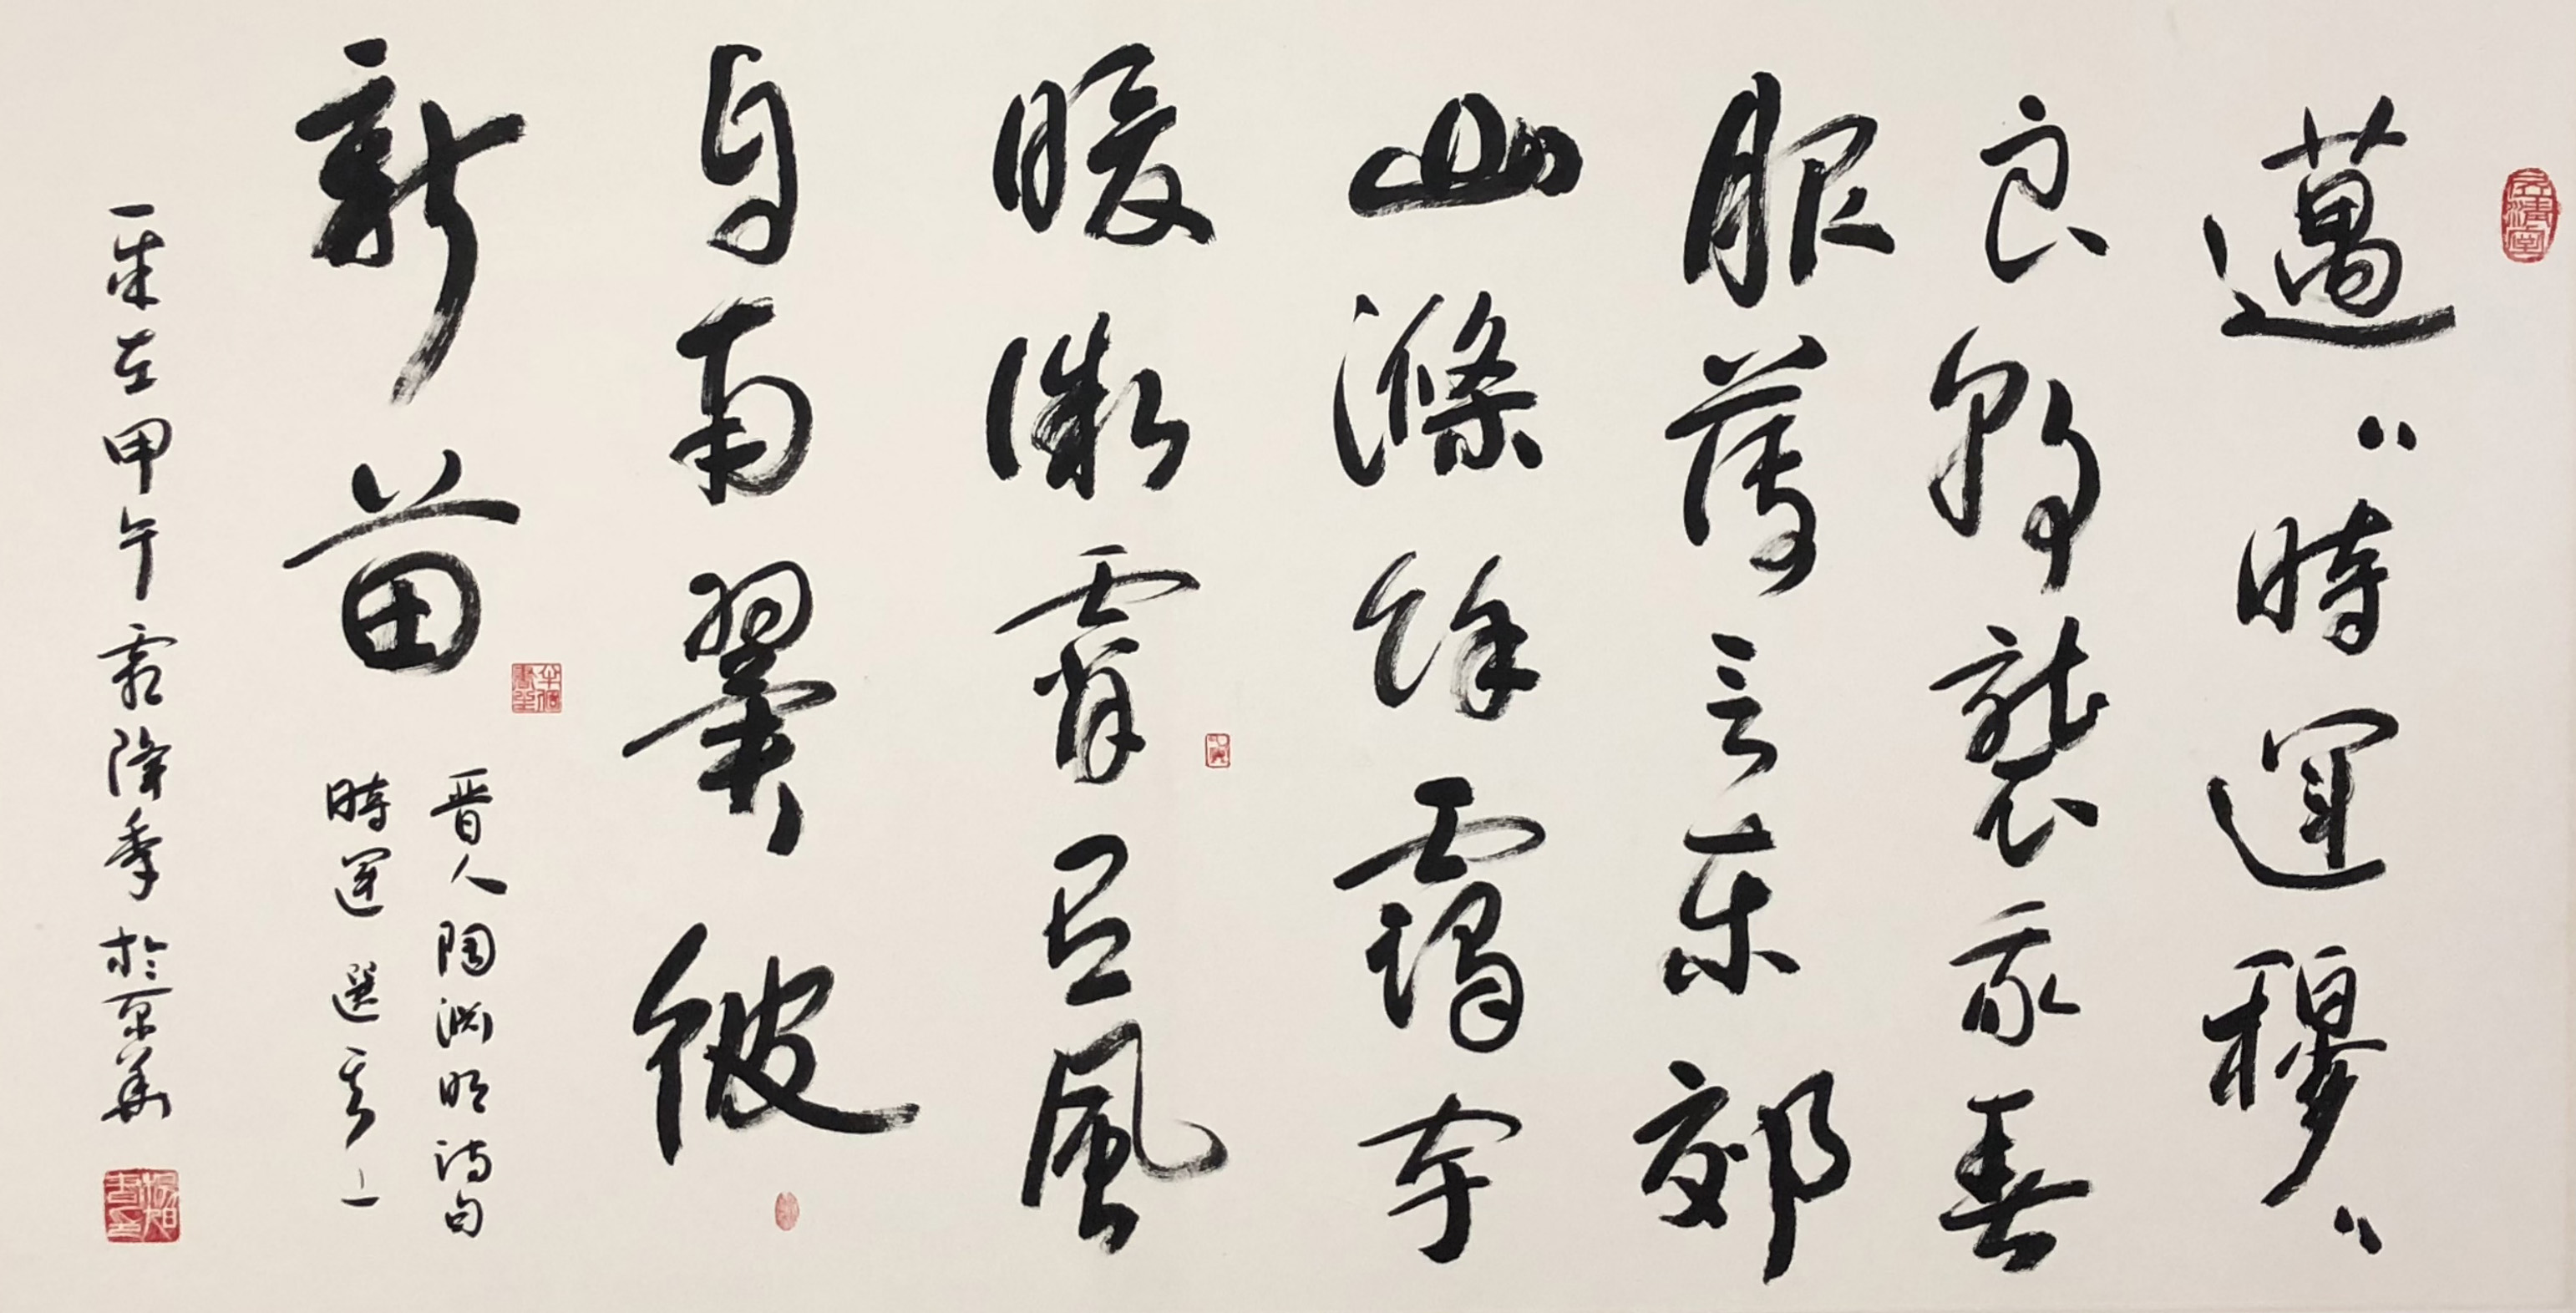 邁〻時運穆〻
良朝襲我春
服薄言東郊
山滌餘靄宇
暖微霄有風
自南翼彼
新苗
晋人陶渊明詩句
時運選其一
在甲午霜降季於京華